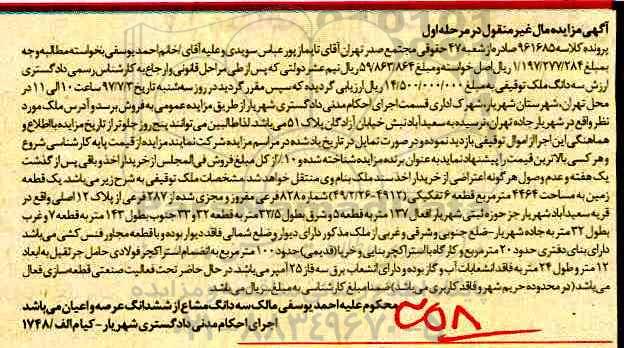 آگهی مزایده مال غیر منقول در مرحله اول
پرونده کلاسه 961685 صادره از شعبه 47 حقوقی مجتمع صدر تهران آقای تایماز پور عباس سویدی و علیه آقای/خانم احمد یوسفی بخواسته مطالبه وجه
بمبلغ 1/197/277/284 ریال اصل خواسته و مبلغ 59/863/864 ریال نیم عشر دولتی که پس از طی مراحل قانونی و ارجاع به کارشناس رسمی دادگستری
ارزش سه دانگ ملک توقیفی به مبلغ 14/500/000/000 ریال ارزیابی گردیده که سپس مقرر گردید در روز سه شنبه تاریخ 97/7/3 ساعت 10 الی 11 در
محل تهران، شهرستان شهریار، شهرک اداری قسمت اجرای احکام مدنی دادگستری شهریار از طریق مزایده عمومی به فروش برسد و آدرس ملک مورد
نظر واقع در شهریار جاده تهران نرسیده به سعیدآباد نبش خیابان آزادگان پلاک 51 می باشد. لذا طالبین می توانند پنج روز جلوتر از تاریخ مزایده با اطلاع و
هماهنگی این اجرا از اموال توقیفی بازدید نموده و در صورت تمایل در تاریخ یاد شده در مراسم مزایده شرکت نمایند مزایده از قیمت پایه کارشناسی شروع
و هر کسی بالاترین قیمت را پیشنهاد نماید به عنوان برنده مزایده شناخته شده و 10٪ از کل مبلغ فروش فی المجلس از خریدار اخذ و باقی پس از گذشت
یک هفته و عدم وصول هر گونه اعتراضی از خریدار اخذ سند ملک بنام وی منتقل خواهد شد. مشخصات ملک توقیفی به شرح زیر می باشد. یک قطعه
زمین به مساحت 4464 متر مربع قطعه 6 تفکیکی (4913-49/2/26) شماره 828 فرعی مفروز و مجزی شده از 287 فرعی از پلاک 12 اصلی واقع در
قریه سعیدآباد شهریار جز حوزه ثبتی شهریار افعال 137 متر به قطعه 5 و شرق بطول 32/5 متر به قطعه 32 و 33 جنوب بطول 143 متر به قطعه 7 و غرب
بطول 32 متر به جاده شهریار-ضلع جنوبی و شرقی و غربی از ملک مذکور دارای دیوار و ضلع شمالی فاقد دیوار بوده و با قطعه مجاور فنس کشی می باشد
دارای بنای دفتری حدود 20 متر مربع و کارگاه با استراکچر بنایی و خرپا (قدیمی) حدود 100 متر مربع به انضمام استراکچر فولادی حامل جرثقیل به ابعاد
12 متر و طول 24 متر به فاقد انشعابات آب و گاز بوده و دارای انشعاب برق سه فاز 25 آمپر می باشد در حال حاضر تحت فعالیت صنعتی قطعه سازی فعال
می باشد (در محدوده حریم شهر و فاقد کاربری می باشد) ضمنا مبلغ کارشناسی به مبلغ ریال می باشد
محکوم علیه احمد یوسفی مالک سه دانگ مشاع از ششدانگ عرصه و اعیان می باشد
اجرای احکام مدنی دادگستری شهریار-کیام الف/1748
258